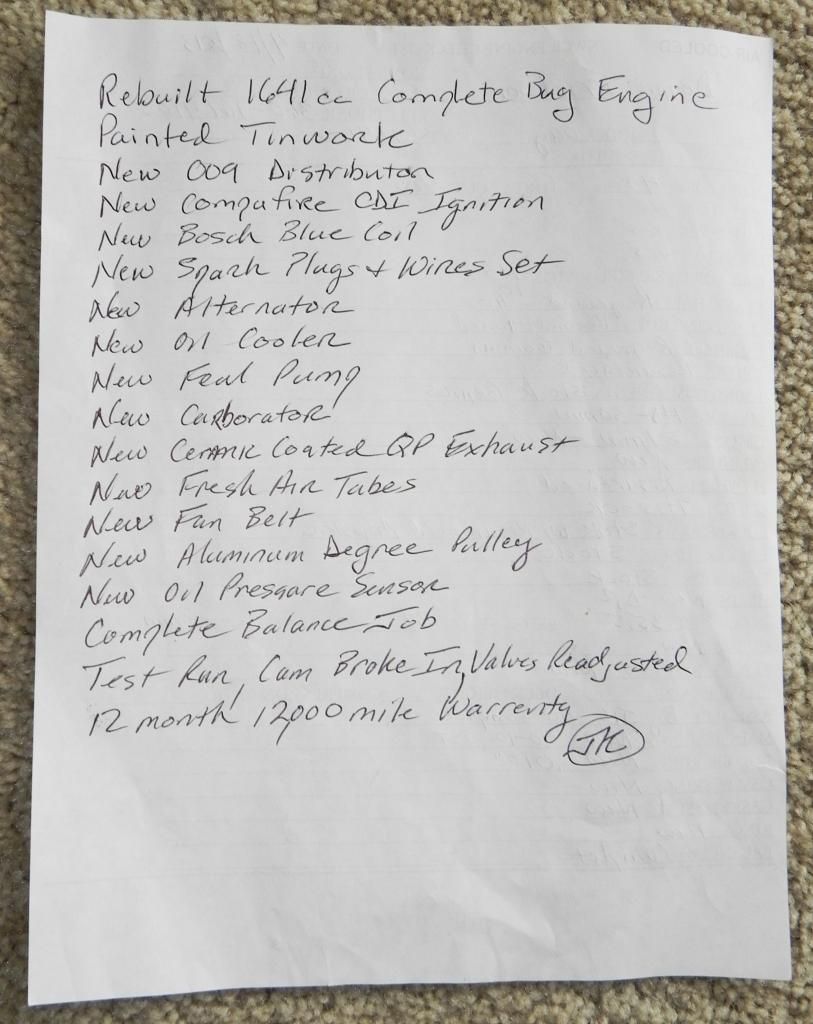 Rebuilt 1641cc Complete Bug Engine
Painted Tinwork
New 009 Distributor
New Compufire CDI Ignition
New Bosch Blue Coil
New Spark Plugs + Wires Set
New Alternator
New Oil Cooler
New Feul Pump
New Carborator
New Ceramic Coated QP Exhaust
New Fresh Air Tubes
New Fan Belt
New Aluminum Degree Pulley
New Oil Pressure Sensor
Complete Balance Job
Test Run, Cam Broke In, Valves Readjusted
12 month 12,000 mile Warrenty
JK